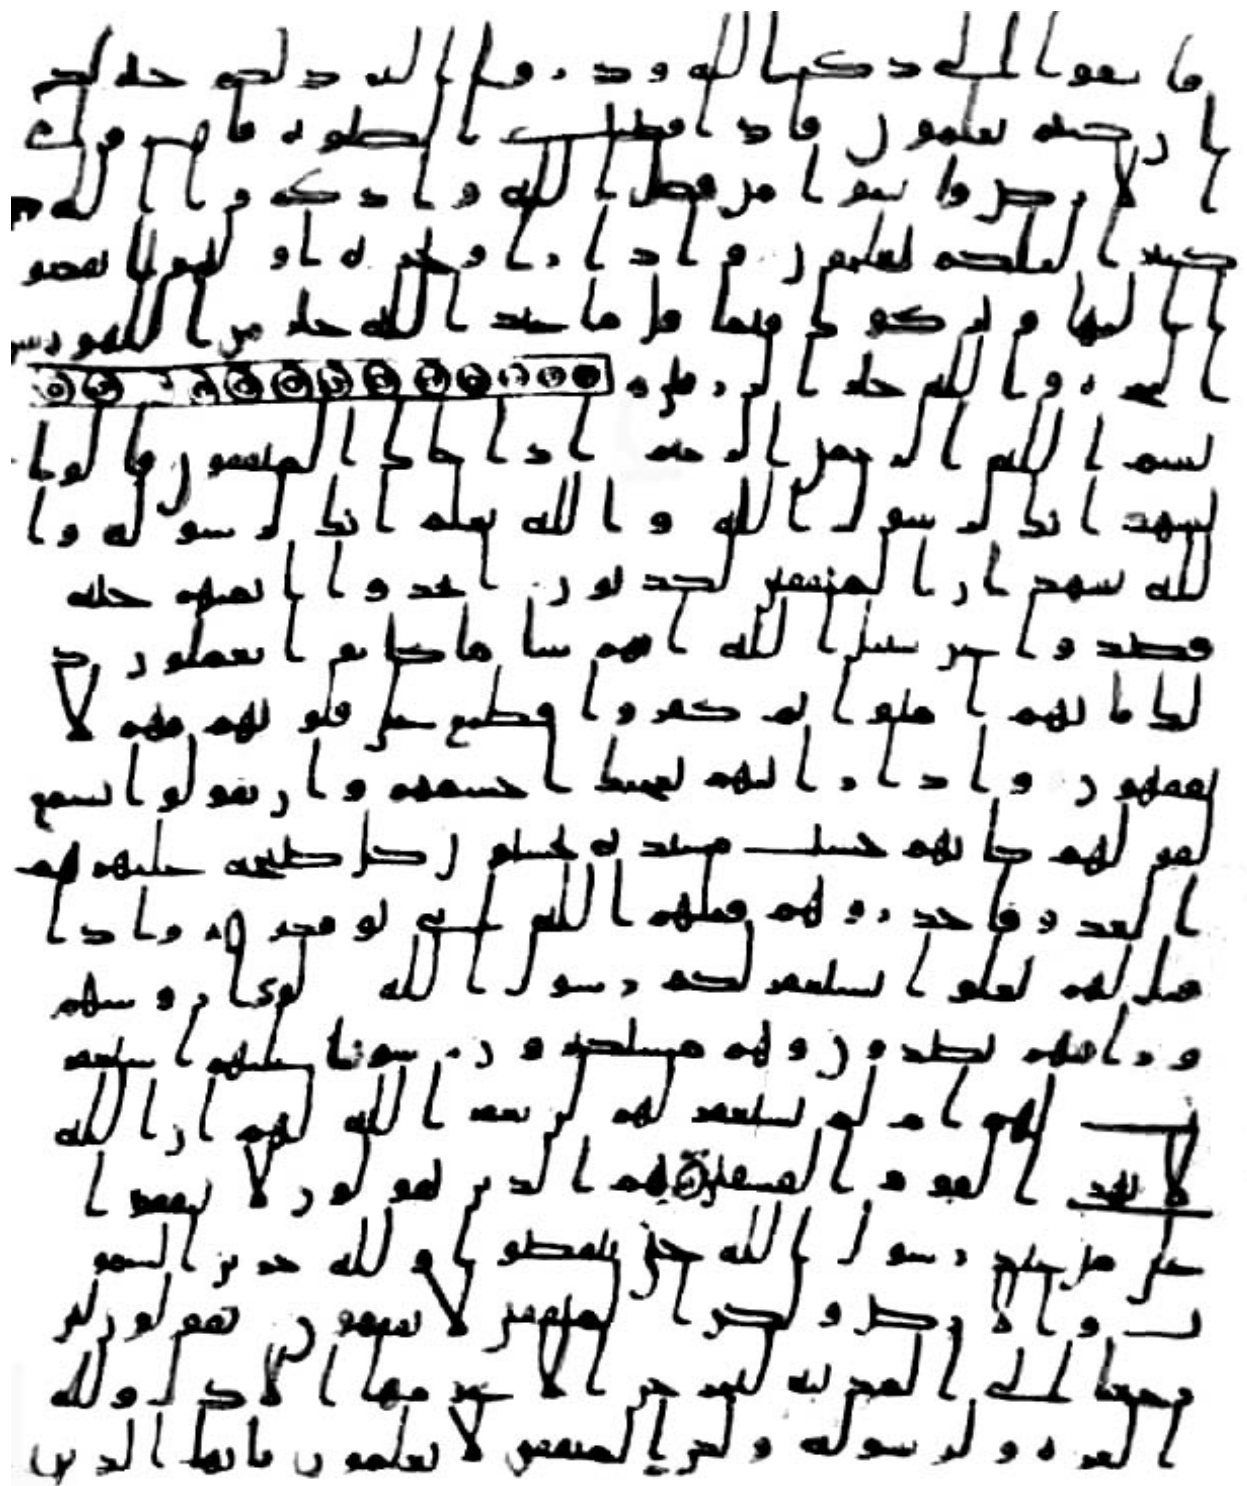 فاسعوا الى ذكر الله وذروا البيع ذلكم خير لكم
ان كنتم تعلمون فاذا قضيت الصلوة فانتشروا في
الارض وابتغوا من فضل الله واذكروا الله
كثيرا لعلكم تفلحون واذا راوا تجرة او لهوا انفضو
ا اليها وتركوك قائما قل ما عند الله خير من اللهو ومن
التجرة والله خير الرزقين
بسم الله الرحمن الرحيم اذا جاك المنفقون قالوا
نشهد انك لرسول الله والله يعلم انك لرسوله وا
لله يشهد ان المنفقين لكذبون اتخذوا ايمنهم جنة
فصدوا عن سبيل الله انهم سا ما كانوا يعملون ذ
لك بانهم امنوا ثم كفروا فطبع على قلوبهم فهم لا
يفقهون واذا رايتهم تعجبك اجسمهم وان يقولوا تسمع
لقولهم كانهم خشب مسندة يحسبون كل صيحة عليهم هم
العدو فاحذروهم قتلهم الله انى يوفكون واذا
قيل لهم تعلوا يستغفر لكم رسول الله لووا روسهم
ورايتهم يصدون وهم مستكبرون سوا عليهم استغفر
ت لهم ام لم تستغفر لهم لن يغفر الله لهم ان الله
لا يهدي القوم الفسقين هم الذين يقولون لا تنفقوا
على من عند رسول الله حتى ينفضوا ولله خزين السمو
ت والارض ولكن المنفقين لا يفقهون يقولون لئن
رجعنا الى المدينة ليخرجن الاعز منها الاذل ولله
العزة ولرسوله ولكن المنفقين لا يعلمون يايها الذين